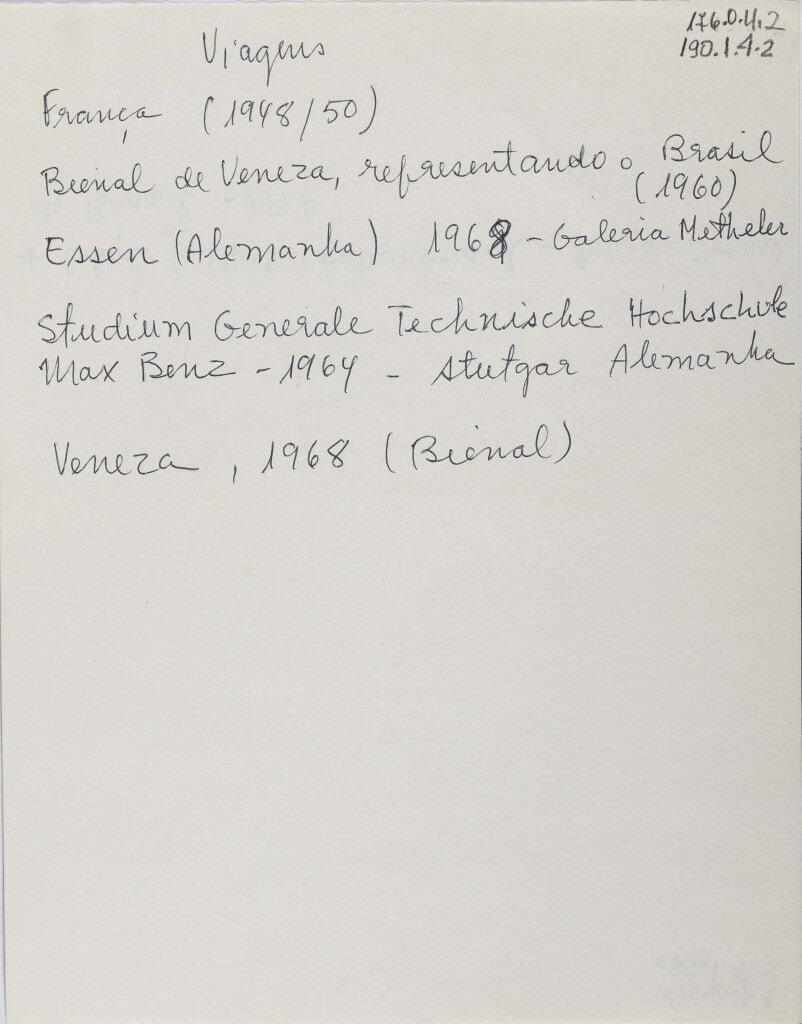 176.0.4.2
190.1.4.2
Viagens
França (1948/50)
Bienal de Veneza, representando o Brasil
(1960)
Essen (Alemanha) 1968 - Galeria Metheler
Studium Generale Technische Hochschule
Max Benz - 1964 - Stutgar Alemanha
Veneza, 1968 (Bienal)